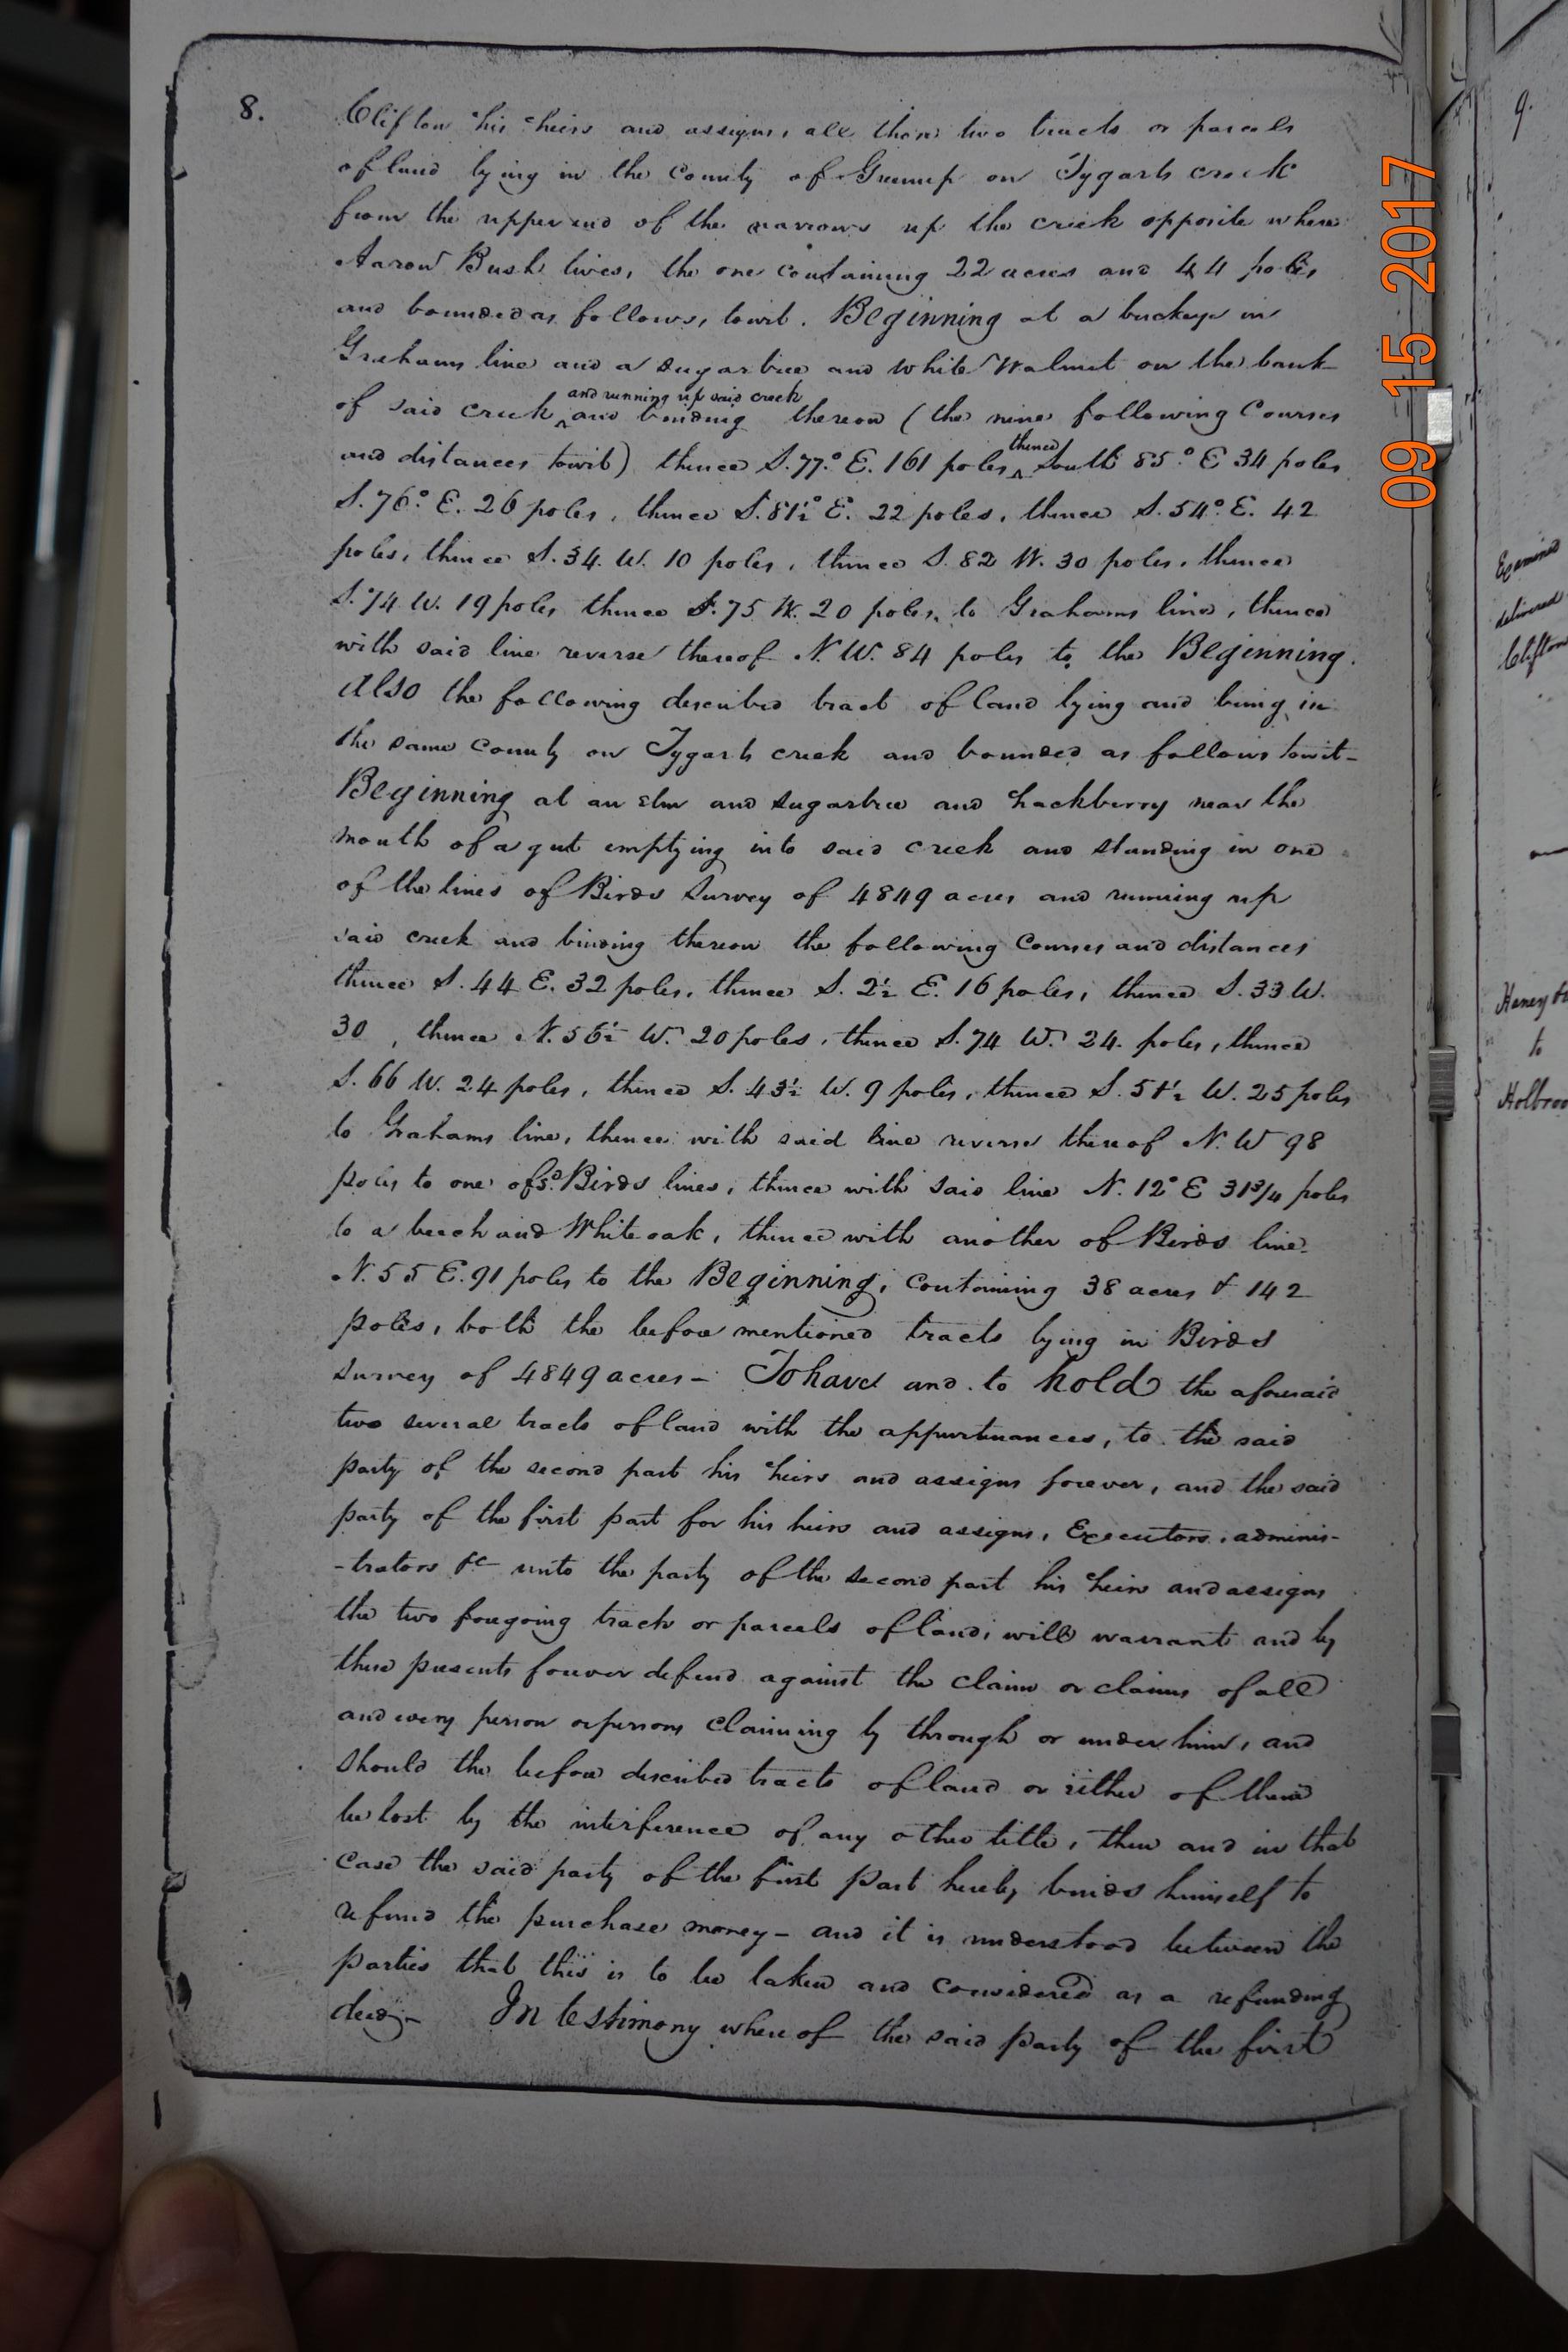 8.
Clifton his heirs and assigns, all those two tracts or parcels
of land lying in the County of Greenup on Tygarts creek
from the upper end of the narrows up the creek opposite where
Aaron Bush lives, the one containing 22 acres and 44 poles
and bounded as follows, towit. Beginning at a buckeye in
Grahams line and a sugartree and white Walnut on the bank
and running up said creek
of said creek ^ and binding thereon (the nine following Courses
thence
and distances towit) thence S. 77.° E. 161 poles ^ South 85.° E 34 poles
S. 76.° E. 26 poles, thence S. 81½° E. 22 poles, thence S. 54° E. 42
poles, thence S. 34. W. 10 poles, thence S. 82 W. 30 poles, thence
S. 74 W. 19 poles thence S. 75 W. 20 poles, to Grahams line, thence
with said line reverse thereof N. W. 84 poles to the Beginning.
Also the following described tract of land lying and being in
the same county on Tygarts creek and bounded as follows towit-
Beginning at an elm and sugartree and hackberry near the
mouth of a gut emptying into said creek and standing in one
of the lines of Birds Survey of 4849 acres and running up
said creek and binding thereon the following Courses and distances
thence S. 44 E. 32 poles, thence S. 2½ E. 16 poles, thence S. 33 W.
30, thence N. 56½ W. 20 poles, thence S. 74 W. 24. poles, thence
S. 66 W. 24 poles, thence S. 43½ W. 9 poles, thence S. 51½ W. 25 poles
to Grahams line, thence with said line reverse thereof N. W 98
poles to one of sd. Birds lines, thence with said line N. 12° E 31¾ poles
to a beech and White oak, thence with another of Birds line
N. 55 E. 91 poles to the Beginning, containing 38 acres & 142
poles, both the before mentioned tracts lying in Birds
survey of 4849 acres - To have and to hold the aforesaid
two several tracts of land with the appurtenances, to the said
party of the second part his heirs and assigns forever, and the said
party of the first part for his heirs and assigns, Executors, adminis-
-trators &c unto the party of the second part his heirs and assigns
the two foregoing tracts or parcels of land, will warrant and by
these presents forever defend against the claim or claims of all
and every person or persons claiming by through or under him, and
should the before described tracts of land or either of them
be lost by the interference of any other title, then and in that
case the said party of the first part hereby binds himself to
refund the purchase money - and it is understood between the
parties that this is to be taken and considered as a refunding
deed - In testimony whereof the said party of the first
09 15 2017
9.
Examined
delivered
Clifton
to